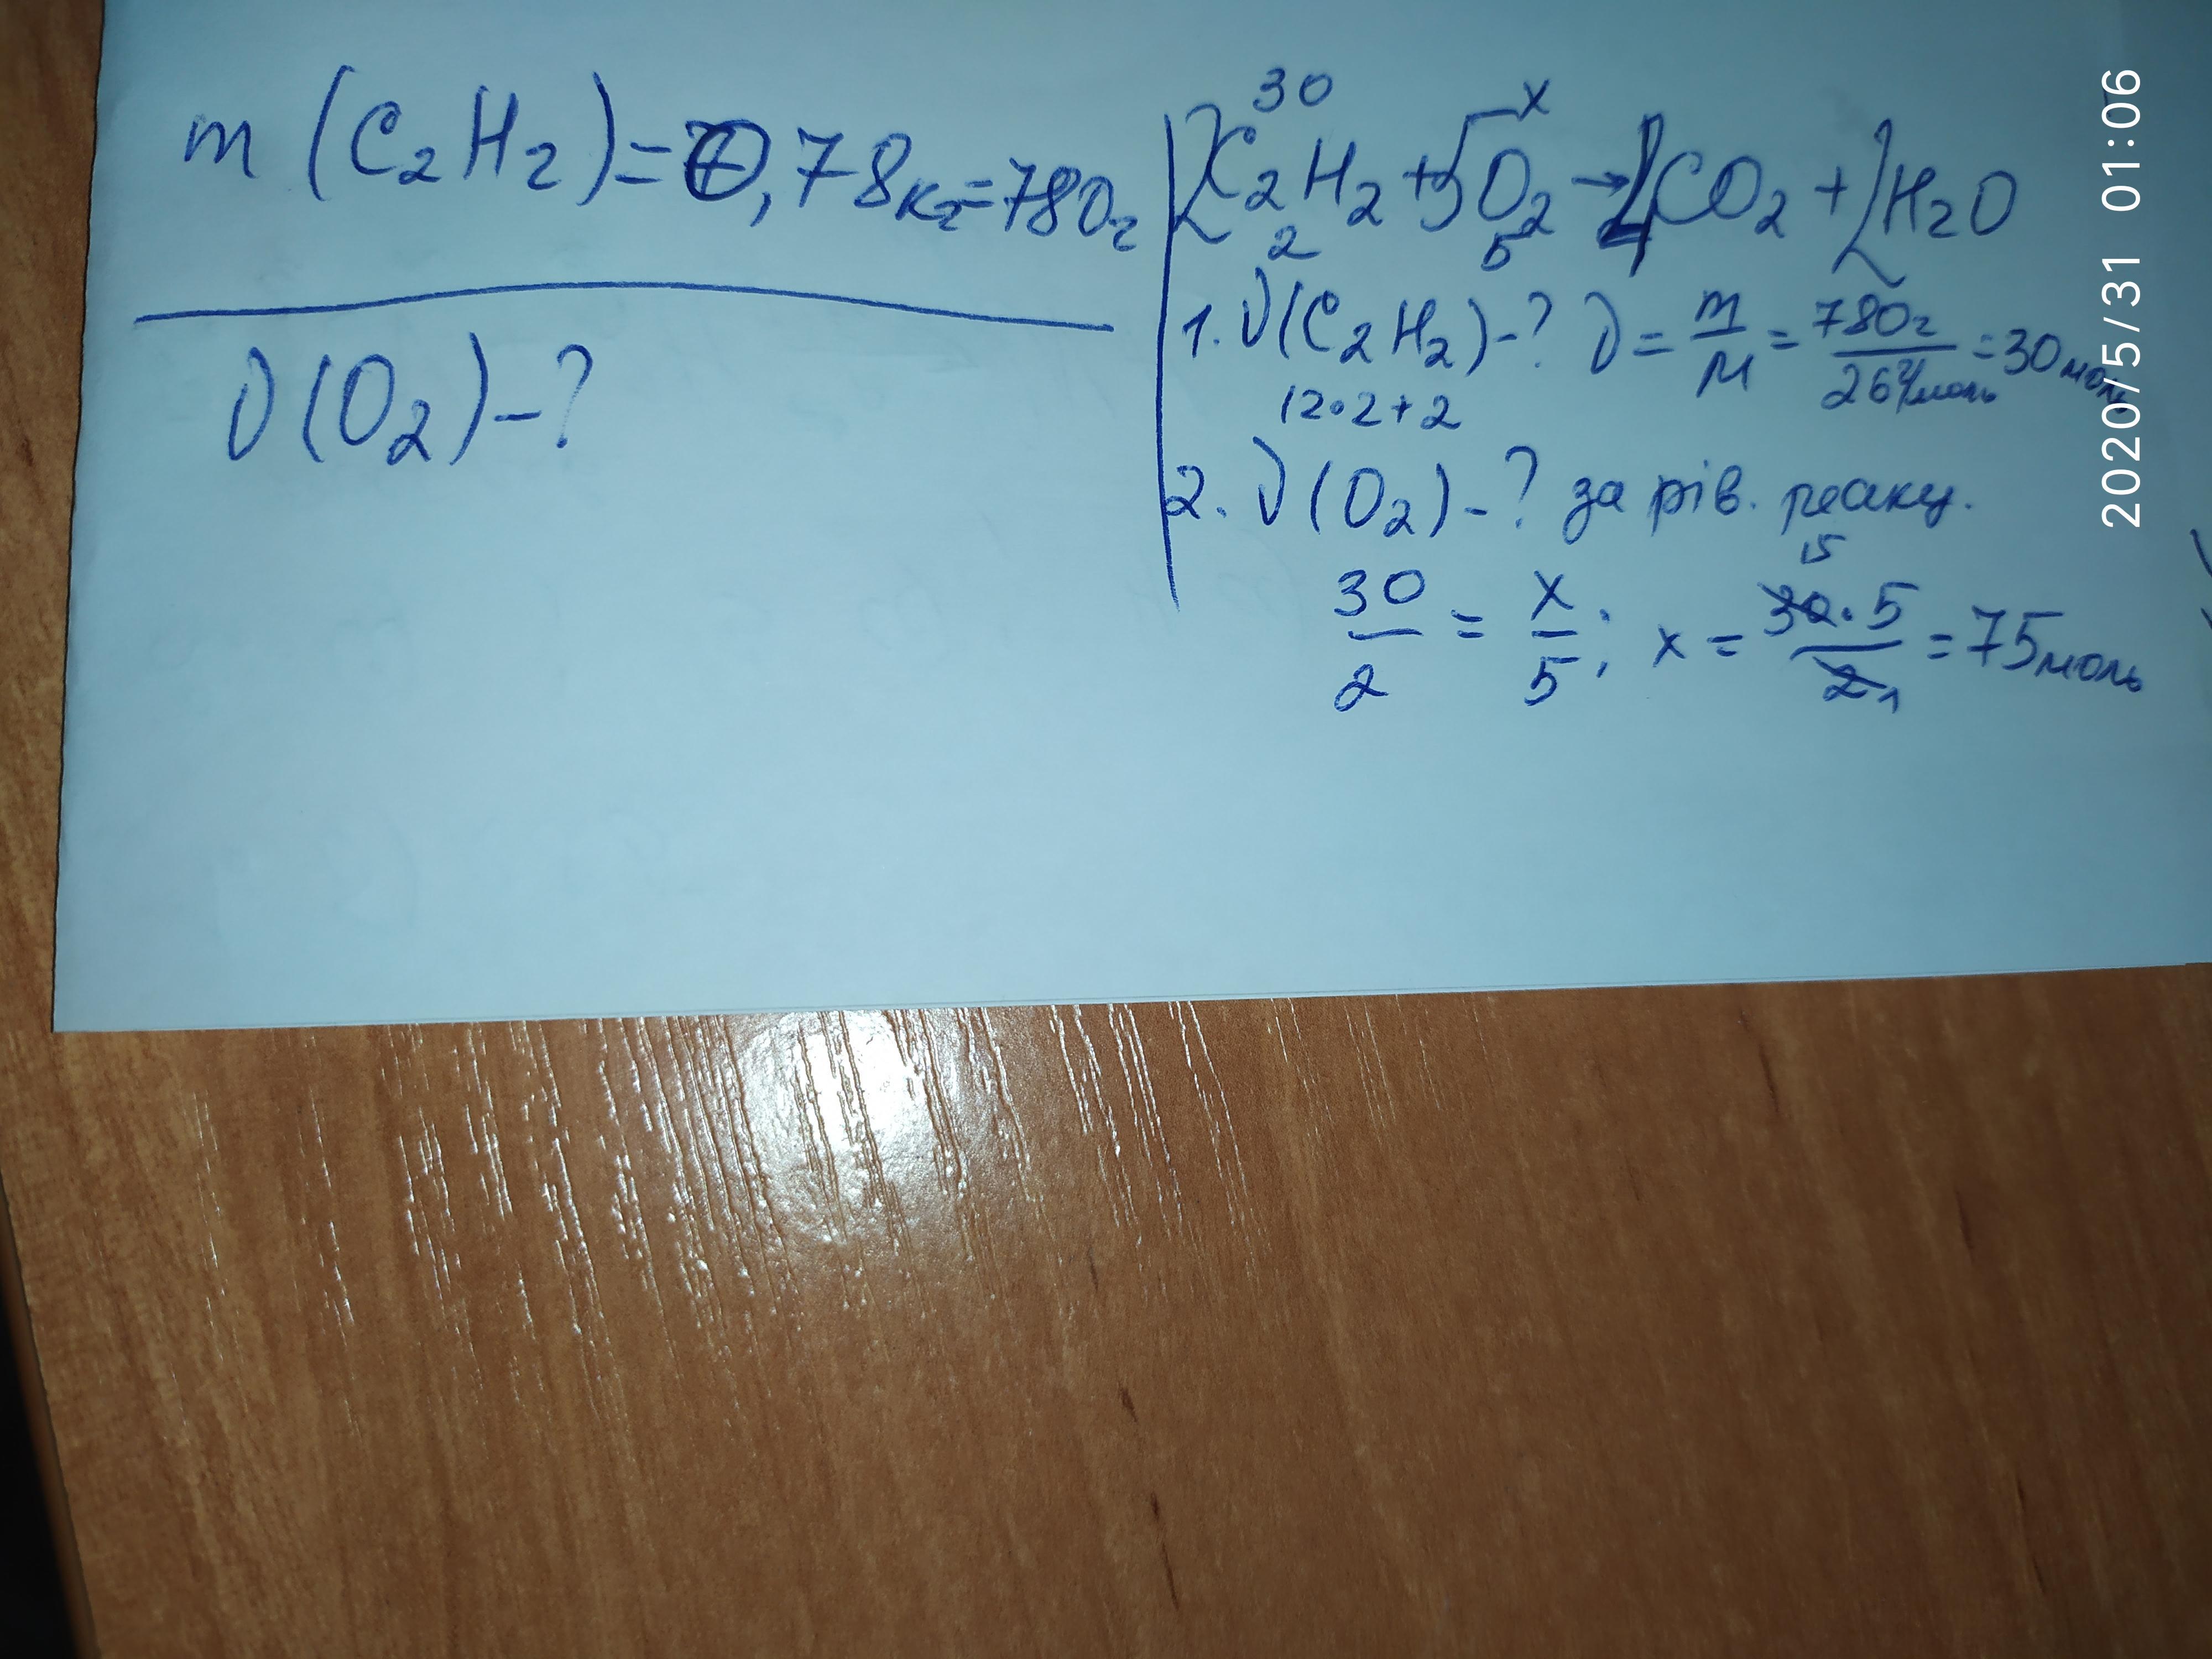 m (C₂H₂) = 0,78кг = 780г
ν(O₂) - ?
30 x
2C₂H₂ + 5O₂ → 4CO₂ + 2H₂O
2 5
1. ν(C₂H₂) - ? ν = m/M = 780г/26г/моль = 30моль
12·2+2
2. ν(O₂) - ? за рів. реакц.
15
30/2 = x/5; x = 30·5/2 1 = 75моль
2020/5/31 01:06